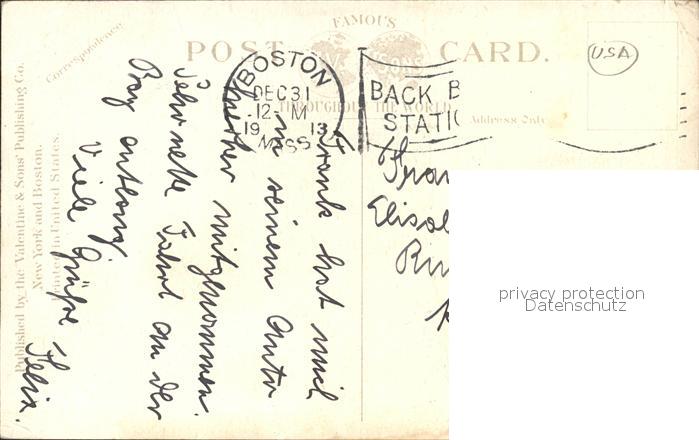 FAMOUS
POST CARD.
THROUGHOUT THE WORLD
Correspondence.
Address Only
Published by the Valentine & Sons' Publishing Co.
New York and Boston.
Printed in United States.
USA
BOSTON
DEC 31
12- M
1913
MASS
BACK B
STATI
Frank hat mich
in seinem Auto
hierher mitgenommen.
Sehr nette Fahrt an der
Bay entlang.
Viele Grüße
Felix.
Frau
Elisab
privacy protection
Datenschutz